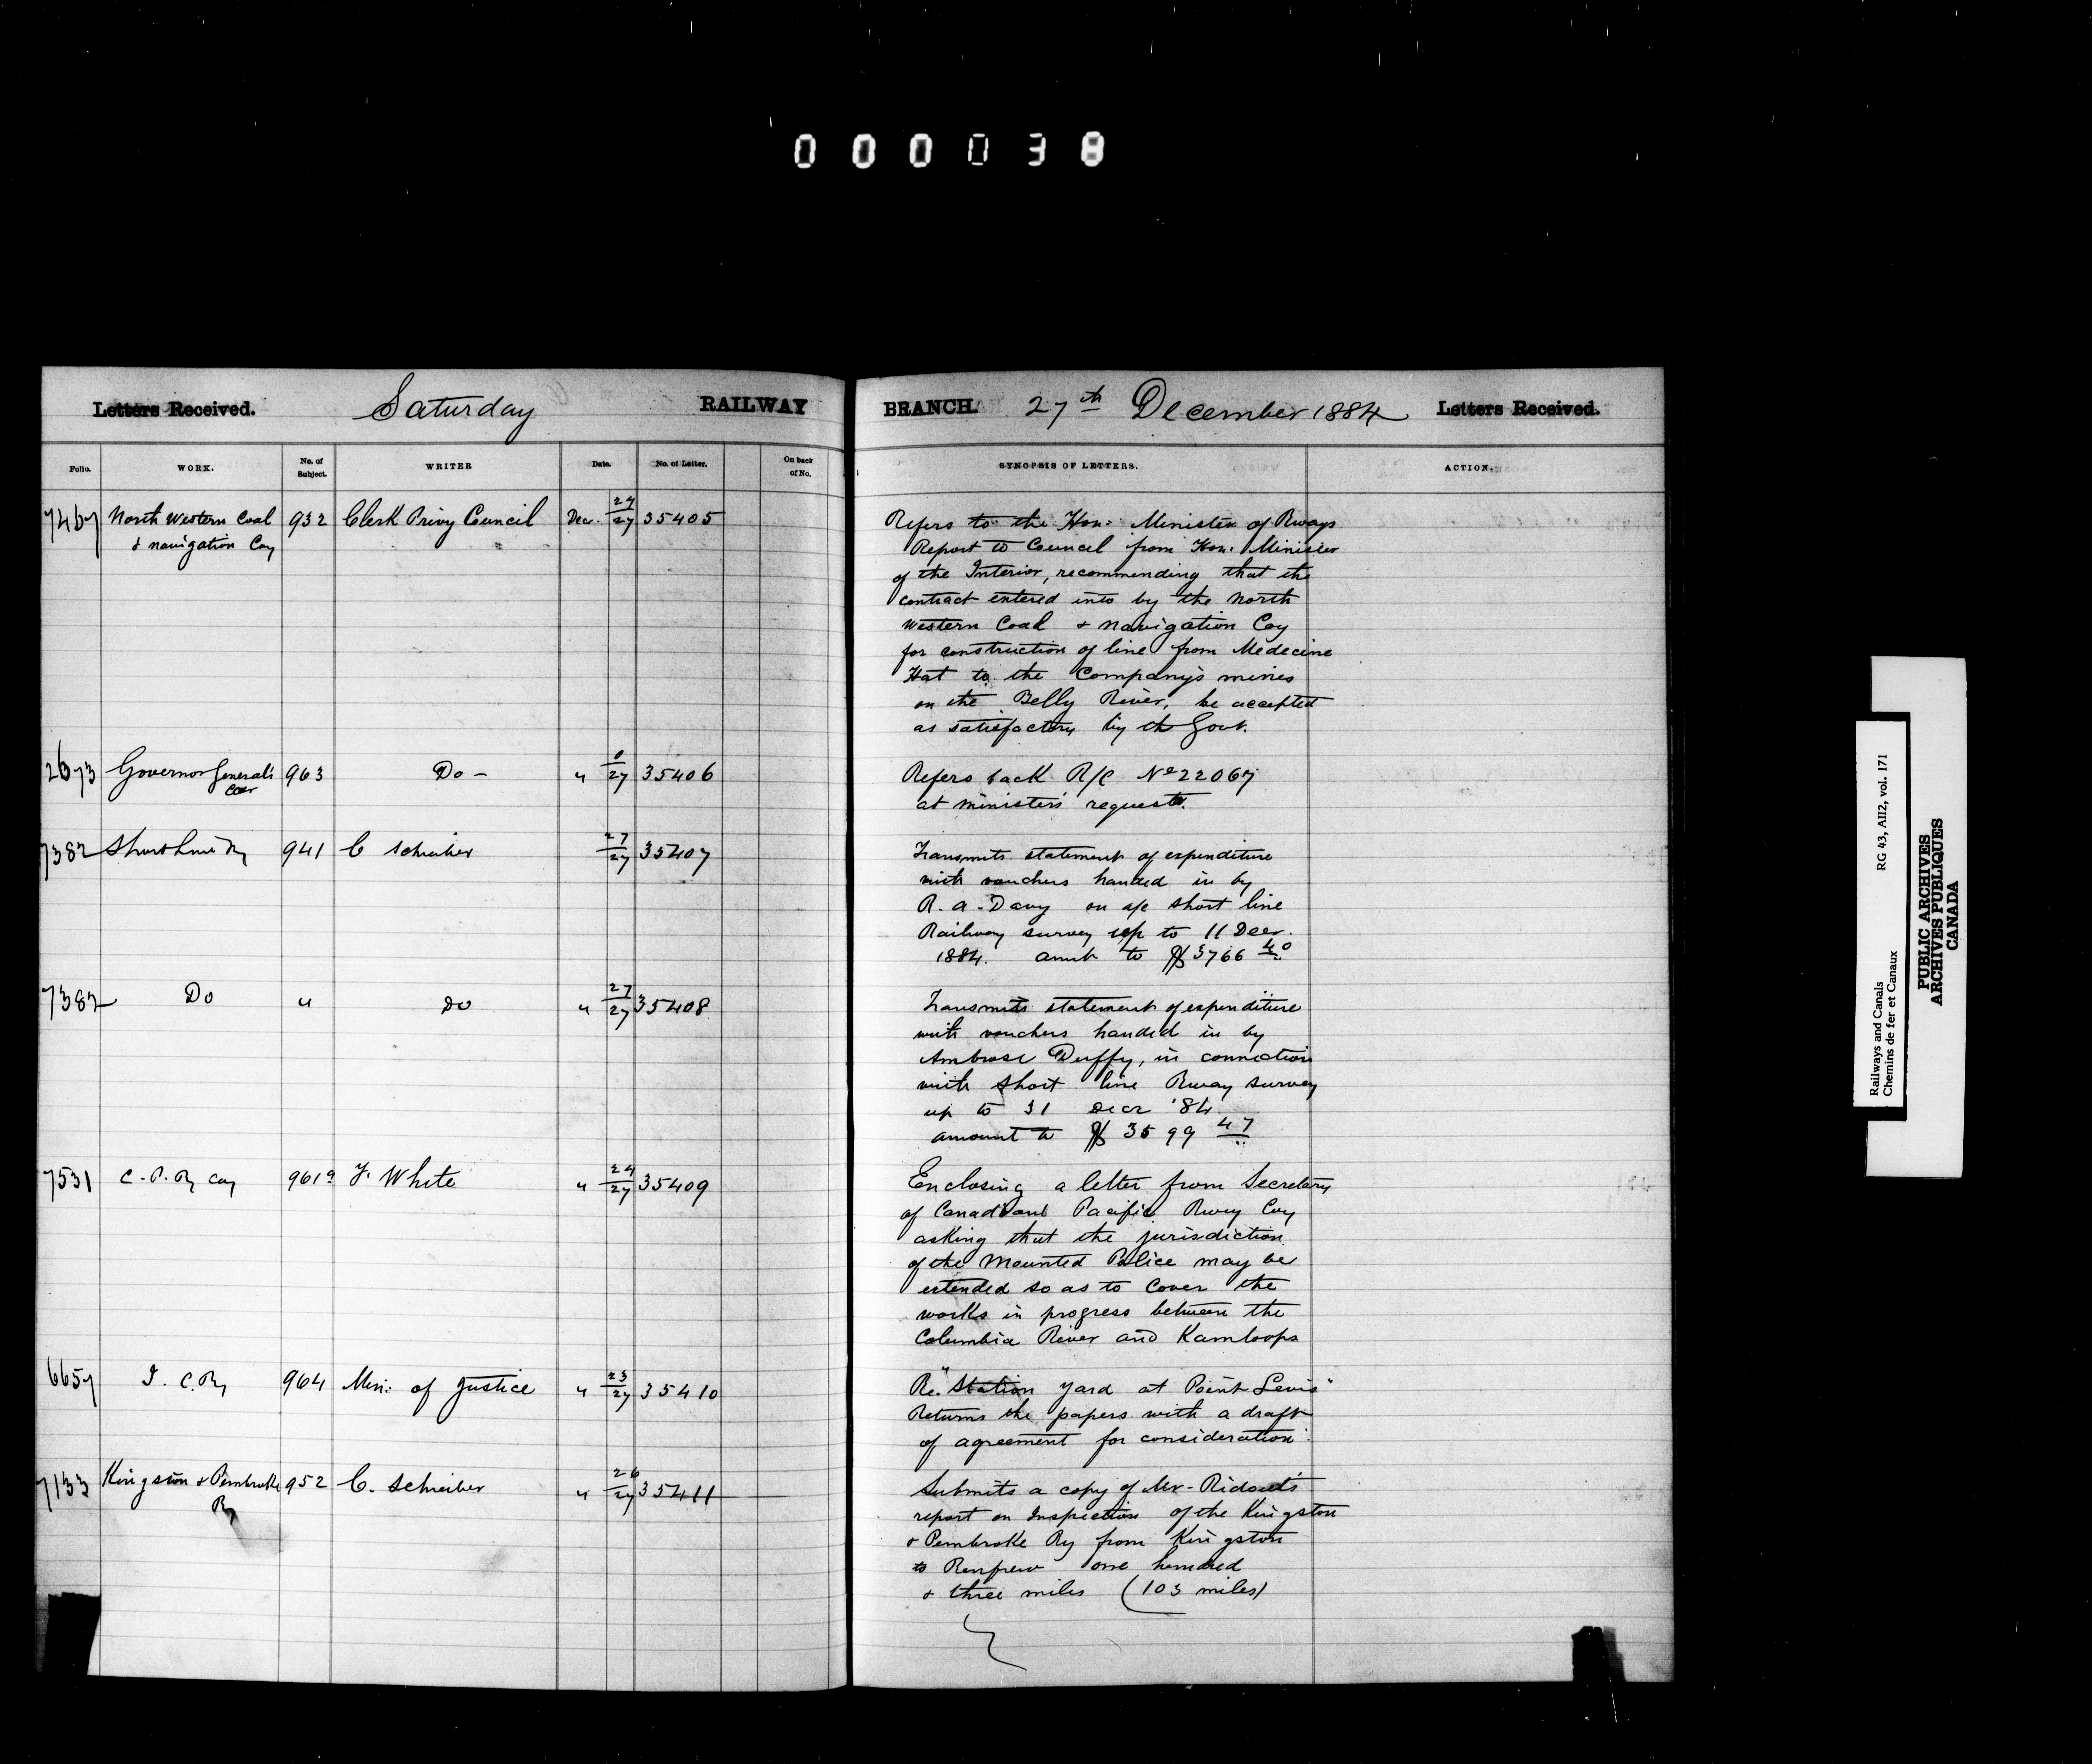 000038
Letters Received. Saturday RAILWAY BRANCH. 27th December 1884 Letters Received.
Folio. WORK. No. of Subject. WRITER Date. No. of Letter. On back of No. SYNOPSIS OF LETTERS. ACTION.
7467 North Western Coal 932 Clerk Privy Council Dec. 24/27 35405
& navigation Coy
Refers to the Hon: Minister of Rways
Report to Council from Hon. Minister
of the Interior, recommending that the
contract entered into by the North
Western Coal & Navigation Coy
for construction of line from Medecine
Hat to the Company's mines
on the Belly River, be accepted
as satisfactory by th Govt.
2673 Governor General's 963 Do - " /27 35406
Car
Refers back R/C No 22067
at ministers' request.
7382 Short Line Ry 941 C Schreiber 27/27 35407
Transmits statement of expenditure
with vouchers handed in by
R. A. Davy on a/c short line
Railway survey up to 11 Decr.
1884. amt to $3766 40
7382 Do " Do " 27/27 35408
Transmits statement of expenditure
with vouchers handed in by
Ambrose Duffy, in connection
with short line Rway survey
up to 31 Decr '84
amount to $ 3599 47
7531 C. P. Ry Coy 961a F. White " 24/27 35409
Enclosing a letter from Secretary
of Canadian Pacific Rwy Coy
asking that the jurisdiction
of the Mounted Police may be
extended so as to cover the
works in progress between the
Columbia River and Kamloops
6657 I. C. Ry 964 Min: of Justice " 23/27 35410
Re. "Station yard at Point Levis"
Returns the papers with a draft
of agreement for consideration.
7133 Kingston & Pembroke 952 C. Schreiber " 26/27 35411
Ry
Submits a copy of Mr. Ridout's
report on Inspection of the Kingston
& Pembroke Ry from Kingston
to Renfrew one hundred
& three miles (103 miles)
Railways and Canals RG 43, AII2, vol. 171
Chemins de fer et Canaux
PUBLIC ARCHIVES
ARCHIVES PUBLIQUES
CANADA